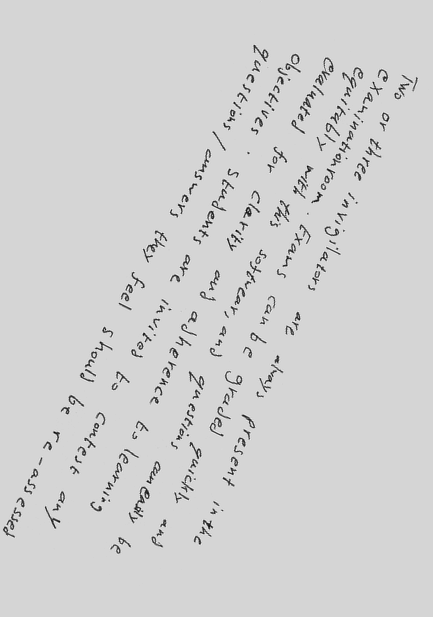 Two or three invigilators are always present in the
examination room. Exams can be graded quickly and
equitably with this softwear, and questions can easily be
evaluated for clarity and adherence to learning
objectives. Students are invited to contest any
questions / answers they feel should be re-assessed